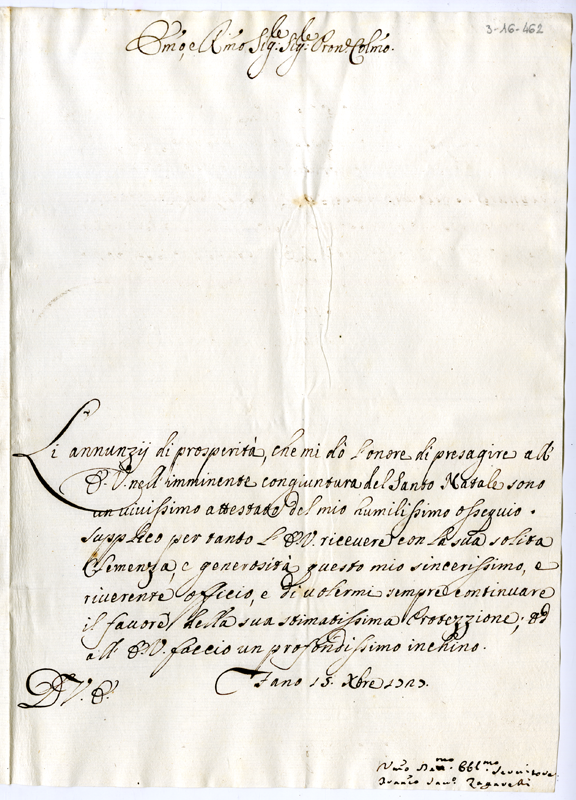 3-16-462
Emo, e Rmo Sig.re Sig.re Prone Colmo.
Li annunzij di prosperità, che mi dò l'onore di presagire all'
E. V. nell'imminente congiuntura del Santo Natale sono
un vivissimo attestato del mio humilissimo ossequio.
Supplico per tanto l'E. V. ricevere con la sua solita
Clemenza, e generosità questo mio sincerissimo, e
riverente officio, e di volermi sempre continuare
il favore della sua stimatissima Protezzione; ed
all'E. V. faccio un profondissimo inchino.
D. V. E.
Fano 15. Xbre